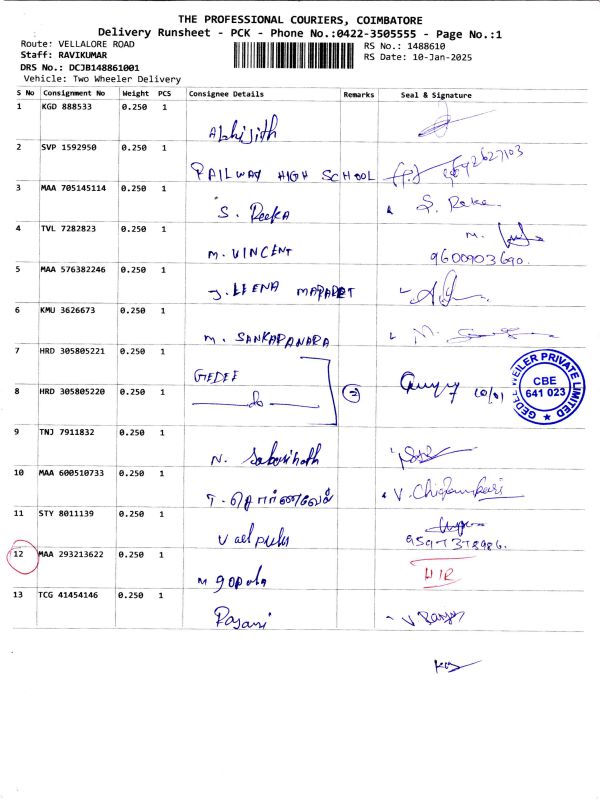 THE PROFESSIONAL COURIERS, COIMBATORE
Delivery Runsheet - PCK - Phone No.:0422-3505555 - Page No.:1
Route: VELLALORE ROAD
RS No.: 1488610
Staff: RAVIKUMAR
RS Date: 10-Jan-2025
DRS No.: DCJB148861001
Vehicle: Two Wheeler Delivery
S No Consignment No Weight PCS Consignee Details Remarks Seal & Signature
1 KGD 888533 0.250 1
Abhijith
2 SVP 1592950 0.250 1
RAILWAY HIGH SCHOOL
3 MAA 705145114 0.250 1
S. Reeka S. Reka
4 TVL 7282823 0.250 1
M. VINCENT M.
9600903690.
5 MAA 576382246 0.250 1
J. LEENA
6 KMU 3626673 0.250 1
M. SANKARANARA M.
7 HRD 305805221 0.250 1
GEDEE
8 HRD 305805220 0.250 1
do 2 10/01
GEDEE WEILER PRIVATE LIMITED
CBE
641 023
9 TNJ 7911832 0.250 1
N.
10 MAA 600510733 0.250 1
V.
11 STY 8011139 0.250 1
12 MAA 293213622 0.250 1
M gopala
13 TCG 41454146 0.250 1
Rajani V